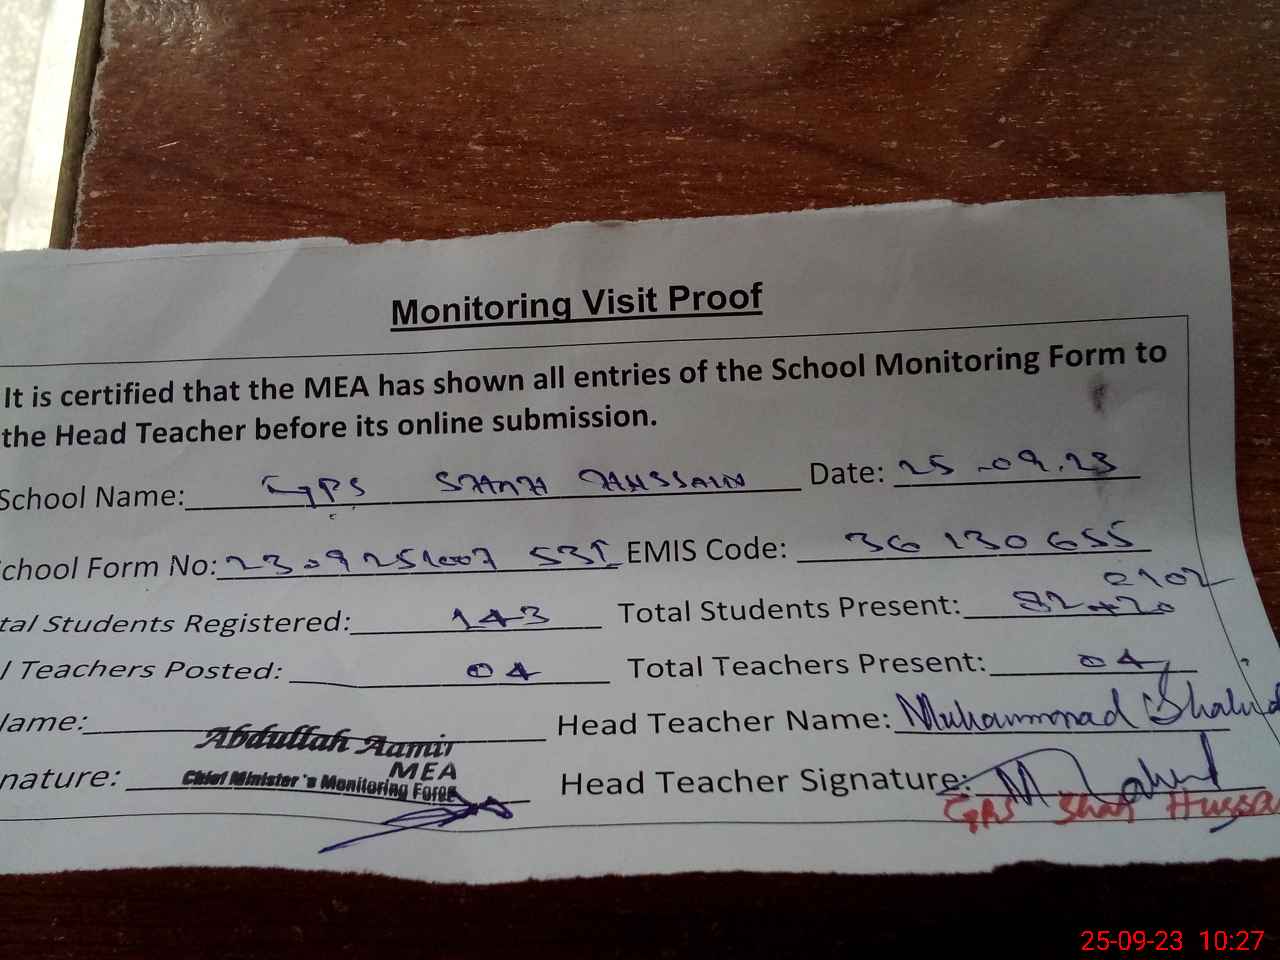 Monitoring Visit Proof
It is certified that the MEA has shown all entries of the School Monitoring Form to
the Head Teacher before its online submission.
School Name: GPS SHAH HUSSAIN Date: 25.09.23
chool Form No: EMIS Code: 36130655
0102
tal Students Registered: 143 Total Students Present: 82+20
l Teachers Posted: 04 Total Teachers Present: 04
lame: Abdullah Aamir Head Teacher Name: Muhammad Shahid
MEA
nature: Chief Minister's Monitoring Force Head Teacher Signature:
GPS Shah Hussa
25-09-23 10:27